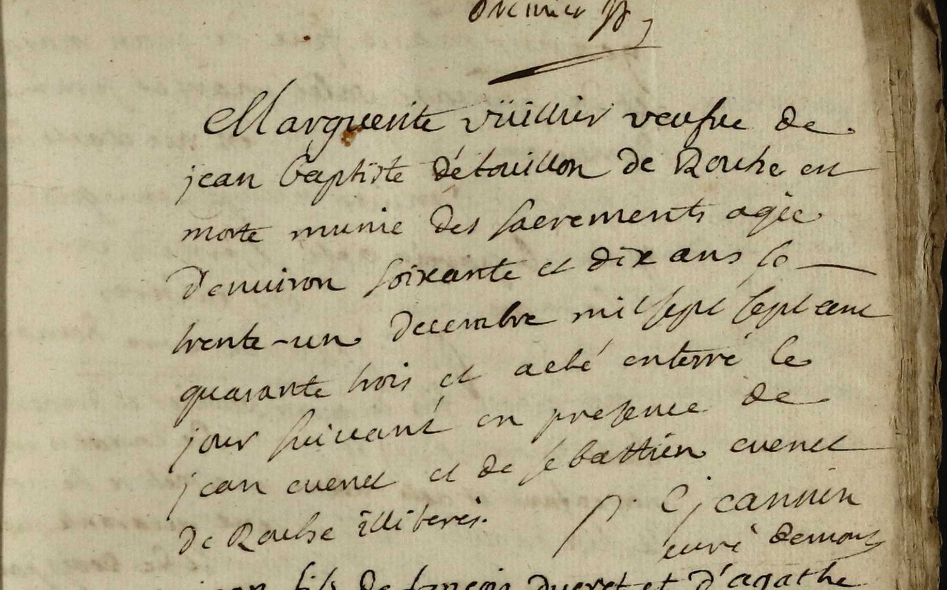 Marguerite vüillier veufue de
jean baptiste détouillon de Roche est
morte munie des sacrements agée
d'enuiron soixante et dix ans le
trente-un decembre mil sept sept cent
quarante trois et aeté enterré le
jour suiuant en presence de
jean cuenet et de sebastien cuenet
de Roche illiterés. C jeannin
curé demont
fils de françois ducret et d'agathe